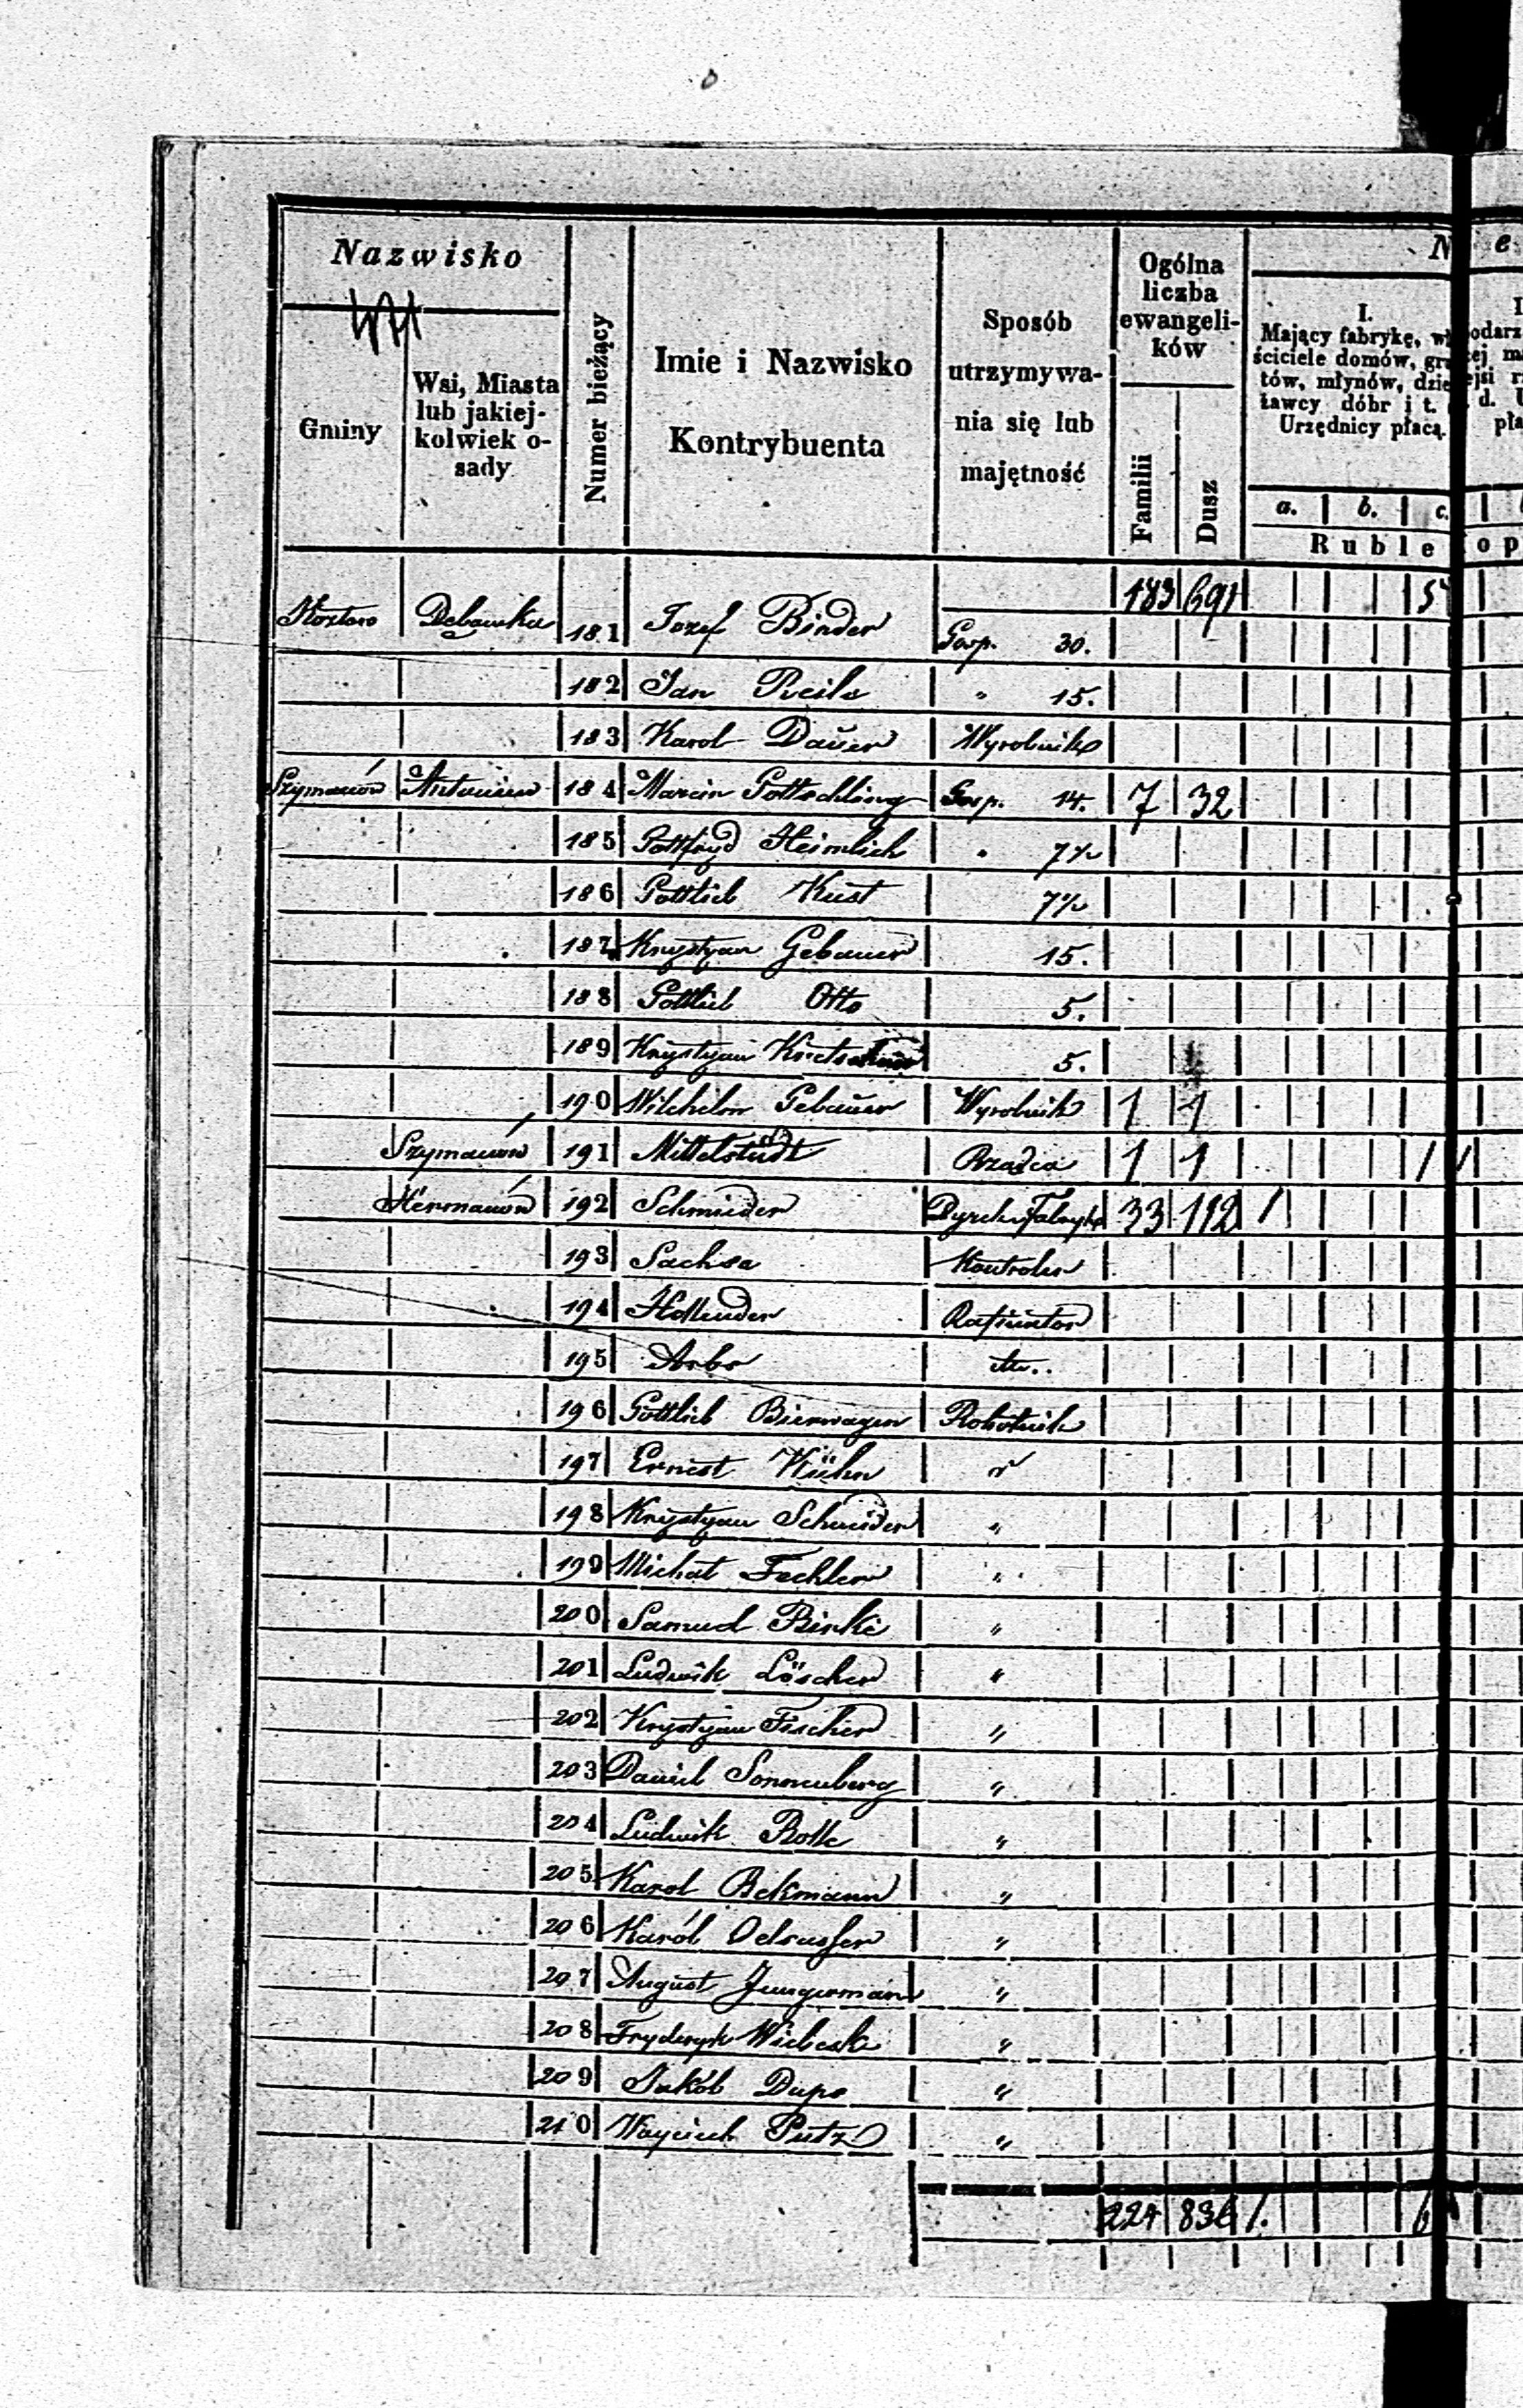 Nazwisko
Gminy
Wsi, Miasta
lub jakiej-
kolwiek o-
sady
Numer bieżący
Imie i Nazwisko
Kontrybuenta
Sposób
utrzymywa-
nia się lub
majętność
Ogólna
liczba
ewangeli-
ków
Familii
Dusz
N e
I.
Mający fabrykę, wł
ściciele domów, gru
tów, młynów, dzie
ławcy dóbr i t.
Urzędnicy płacą.
odarz
ej m
ejsi r
d. U
pła
a. b. c.
Ruble op
183 691 5
181 Jozef Binder Gosp. 30.
182 Jan 〃 15.
183 Karol Dauer Wyrobnik
Szymanów Antoniew 184 Marcin Gottschling Gosp. 14. 7 32
185 Gottfryd Heimlich 〃 7½
186 Gottlieb Kust 7½
187 Krystyan Gebauer 15.
188 Gottlieb Otto 5.
189 Krystyan 5.
190 Wilchelm Gebauer Wyrobnik 1 1
Szymanów 191 Mittelstädt Rządca 1 1 1 1
Hermanów 192 Schmieder Dyrek. Fabryki 33 112 1
193 Sachse Kontroler
194
195
196 Gottlieb Bierwagen Robotnik
197 Ernest Kühn 〃
198 Krystyan Schneider 〃
199 Michał Fechler 〃
200 Samuel Binke 〃
201 Ludwik Löscher 〃
202 Krystyan Fischer 〃
203 Daniel Sonnenberg 〃
204 Ludwik 〃
205 Karol Bekmann 〃
206 Karól 〃
207 August Jungerman 〃
208 Fryderyk 〃
209 Jakób 〃
210 Woyciech Putz 〃
224 836 1. 6